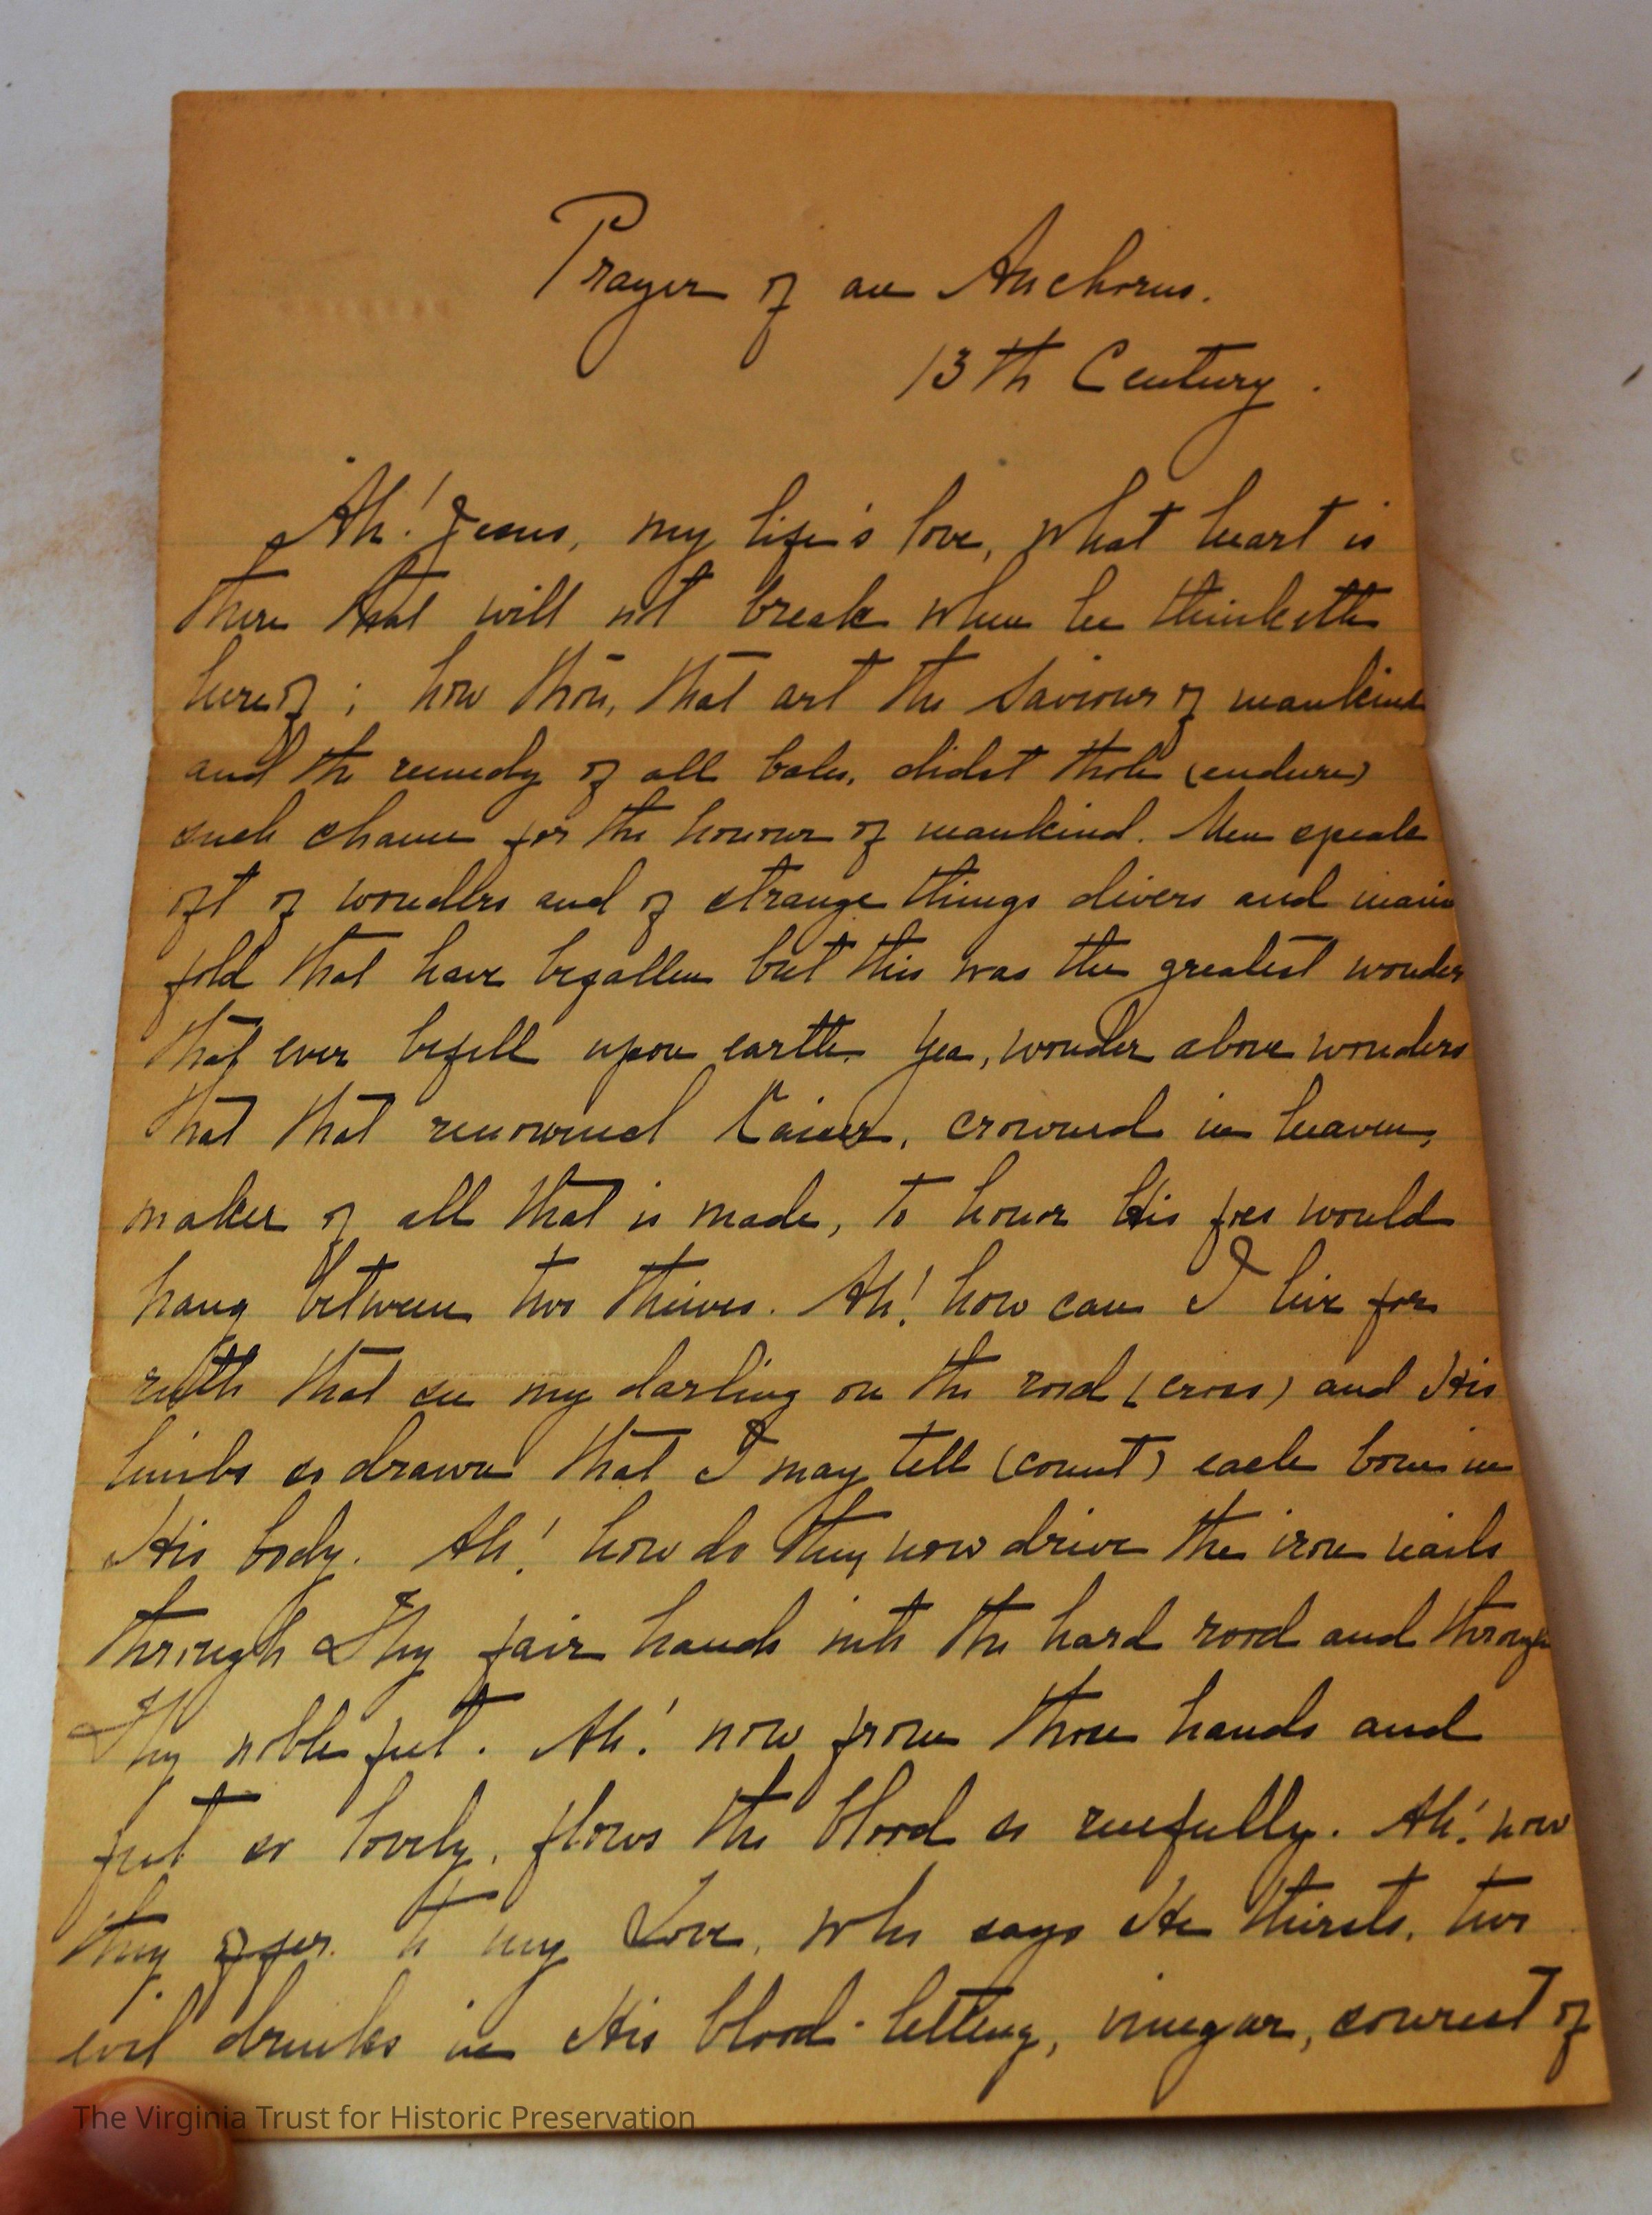 Prayer of an Anchorus.
13th Century.
Ah! Jesus, my life's love, what heart is
there that will not break when he thinketh
hereof; how thou, that art the Saviour of mankind
and the remedy of all bales, didst thole (endure)
such shame for the honour of mankind. Men speak
oft of wonders and of strange things divers and mani
fold that have befallen but this was the greatest wonder
that ever befell upon earth. Yea, wonder above wonders
that that renowned Kaiser, crowned in heaven,
maker of all that is made, to honor His foes would
hang between two thieves. Ah! how can I live for
ruth that see my darling on the rood (cross) and His
limbs so drawn that I may tell (count) each bone in
His body. Ah! how do they now drive the iron nails
through Thy fair hands into the hard rood and through
Thy noble feet. Ah! now from those hands and
feet so lovely, flows the blood so ruefully. Ah! now
they offer to my Love, who says He thirsts, two
evil drinks in His blood-letting, vinegar, sourest of
The Virginia Trust for Historic Preservation